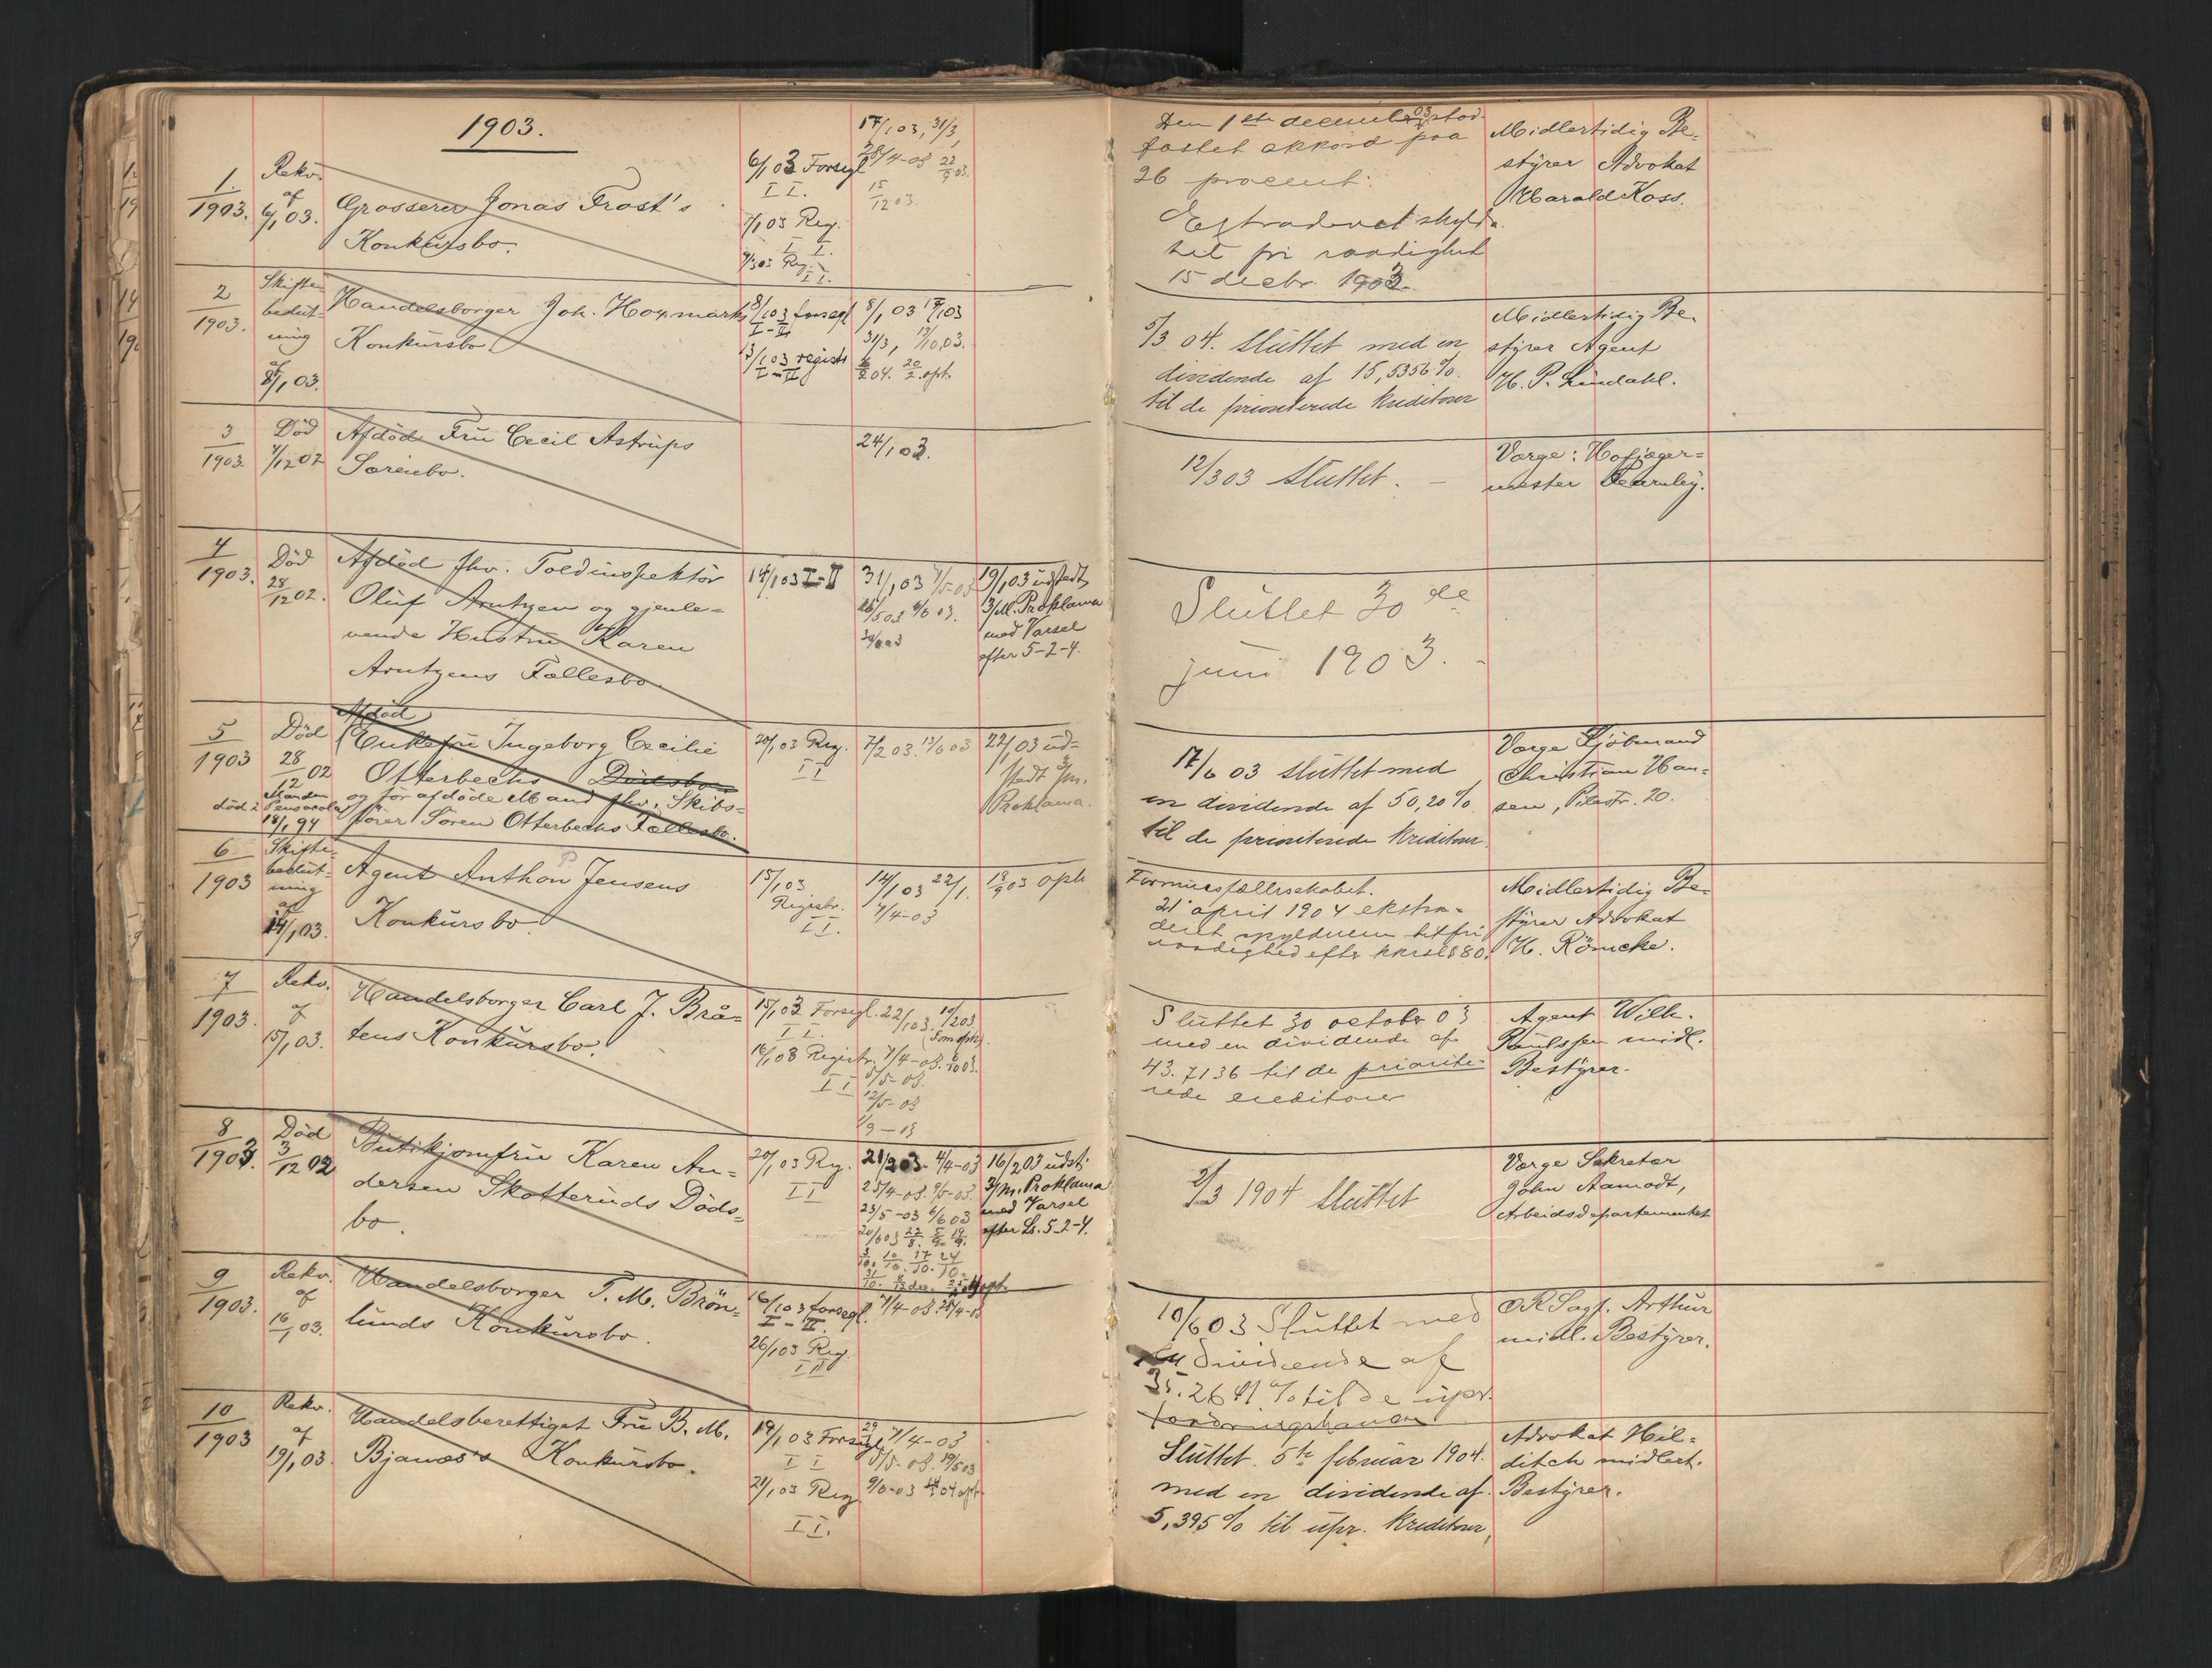 1903.
1.
1903.
Rekv.
af
6/1 03.
Grosserer Jonas Frost's
Konkursbo.
6/1 03 Forsegl
I I.
7/1 03 Reg.
I I.
9/3 03 Reg.
I I.
17/1 03, 31/3,
28/4-03 22/9 03.
15/12 03.
Den 1ste december 03 stad-
fæstet akkord paa
26 procent.
Extraderet skyldn.
til fri raadighed
15 decbr. 1903.
Midlertidig Be-
styrer Advokat
Harald Koss.
2
1903.
Skifte
beslut-
ning
af
8/1 03.
Handelsborger Joh. Hoxmarks
Konkursbo.
8/1 03 forsegl
I-II
13/1 03 registr
I-II
8/1 03 17/1 03
31/3, 13/10 03.
6/2 04. 20/2 oph.
5/3 04. Sluttet med en
dividende af 15,5356 %.
til de prioriterede kreditorer
Midlertidig Be-
styrer Agent
H. P. Lindahl.
3
1903.
Död
4/12 02
Afdöde Frü Cecil Astrups
Særeiebo.
24/1 03.
12/3 03 Sluttet. -
Værge: Hofjæger-
mester Fearnley.
4
1903.
Död
28/12 02.
Afdöd fhv. Toldinspektör
Oluf Arntzen og gjenle-
vende Hustru Karen
Arntzens Fællesbo
14/1 03 I-II
31/1 03 7/5-03
26/5 03 6/6 03.
30/6 03
19/1 03 udstedt
3/M. Proklama
med Varsel
efter 5-2-4.
Sluttet 30 de
juni 1903.
5
1903
Död
28/12 02
Manden
död i Pensacola
18/1 94
Afdöd
Enkefru Ingeborg Cecilie
Otterbechs Dödsbo
og för afdöde Mand fhv. Skibs-
förer Sören Otterbechs Fællesbo.
20/1 03 Reg.
I I
7/2 03. 13/6 03
22/1 03 ud-
stedt 3/m.
Proklama.
17/6 03 sluttet med
en dividende af 50,20 %
til de prioriterede kreditorer.
Værge Kjöbmand
Christian Han-
sen, Pilestr. 20.
6
1903
Skifte-
beslut-
ning
af
14/1 03.
Agent Anthon P. Jensens
Konkursbo
15/1 03
Registr.
I I.
14/1 03 22/1.
4/4-03
18/9 03 oph
Formuesfællesskabet.
21 april 1904 ekstra-
deret skyldneren til fri
raadighed efter kkrsl § 80.
Midlertidig Be-
styrer Advokat
H. Römcke.
7
1903.
Rekv.
af
15/1 03.
Handelsborger Carl J. Brå-
tens Konkursbo.
15/1 03 Forsegl.
I I.
16/1 03 Registr.
I I
22/1 03.
7/4-03.
5/5-03.
12/5-03
1/9-03
Sluttet 30 october 03
med en dividende af
43.7136 til de priorite-
rede creditorer
Agent Wilh.
Paulssen midl.
Bestyrer.
8
1903.
Död
3/12 02
Butikjomfru Karen An-
dersen Skotteruds Döds-
bo.
20/1 03 Reg.
I I
21/2 03. 4/4-03
25/4-03. 9/5-03.
23/5-03 6/6 03
20/6 03
16/2 03 udst.
3/M. Proklama
med Varsel
efter L. 5-2-4.
2/3 1904 Sluttet
Værge Sekretær
John Aamodt,
Arbeidsdepartementet
9
1903.
Rekv.
af
16/1 03.
Handelsborger T. M. Brön-
lunds Konkursbo.
16/1 03 forsegl.
I-II.
26/1 03 Reg.
I II
7/4-03. 28/4-03
10/6 03 Sluttet med
en dividende af
35.2641 % til de upr.
fordringshavere
OR Sagf. Arthur
midl. Bestyrer.
10
1903
Rekv.
af
19/1 03
Handelsberettiget Fru B. M.
Bjanæs's Konkursbo.
19/1 03 Forsegl
I I
21/1 03 Reg
I I.
29/1 7/4-03
5/5-03. 19/5 03
9/6-03
Sluttet. 5te februar 1904.
med en dividende af
5,395 % til upr. kreditorer,
Advokat Hil-
ditch midlert.
Bestyrer.